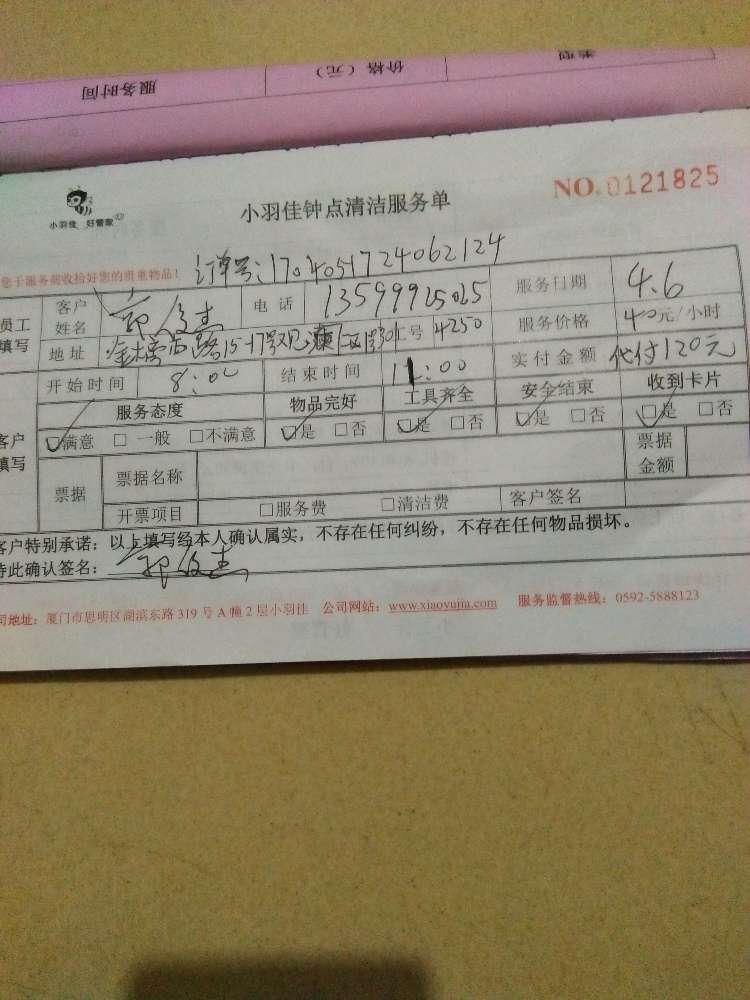 服务时间 价格（元） 类型
小羽佳 好管家
小羽佳钟点清洁服务单
NO.0121825
您于服务前收拾好您的贵重物品！
订单号:1704051724062124
员工填写 客户姓名 电话 13599925025 服务日期 4.6
地址 金桥西路15-17号观 号 4250 服务价格 40元/小时
开始时间 8:00 结束时间 11:00 实付金额 代付120元
客户填写 服务态度 物品完好 工具齐全 安全结束 收到卡片
☑满意 □一般 □不满意 ☑是 □否 ☑是 □否 ☑是 □否 ☑是 □否
票据 票据名称 票据金额
开票项目 □服务费 □清洁费 客户签名
客户特别承诺：以上填写经本人确认属实，不存在任何纠纷，不存在任何物品损坏。
特此确认签名：
司地址：厦门市思明区湖滨东路 319 号 A 幢 2 层小羽佳 公司网站：www.xiaoyujia.com 服务监督热线：0592-5888123